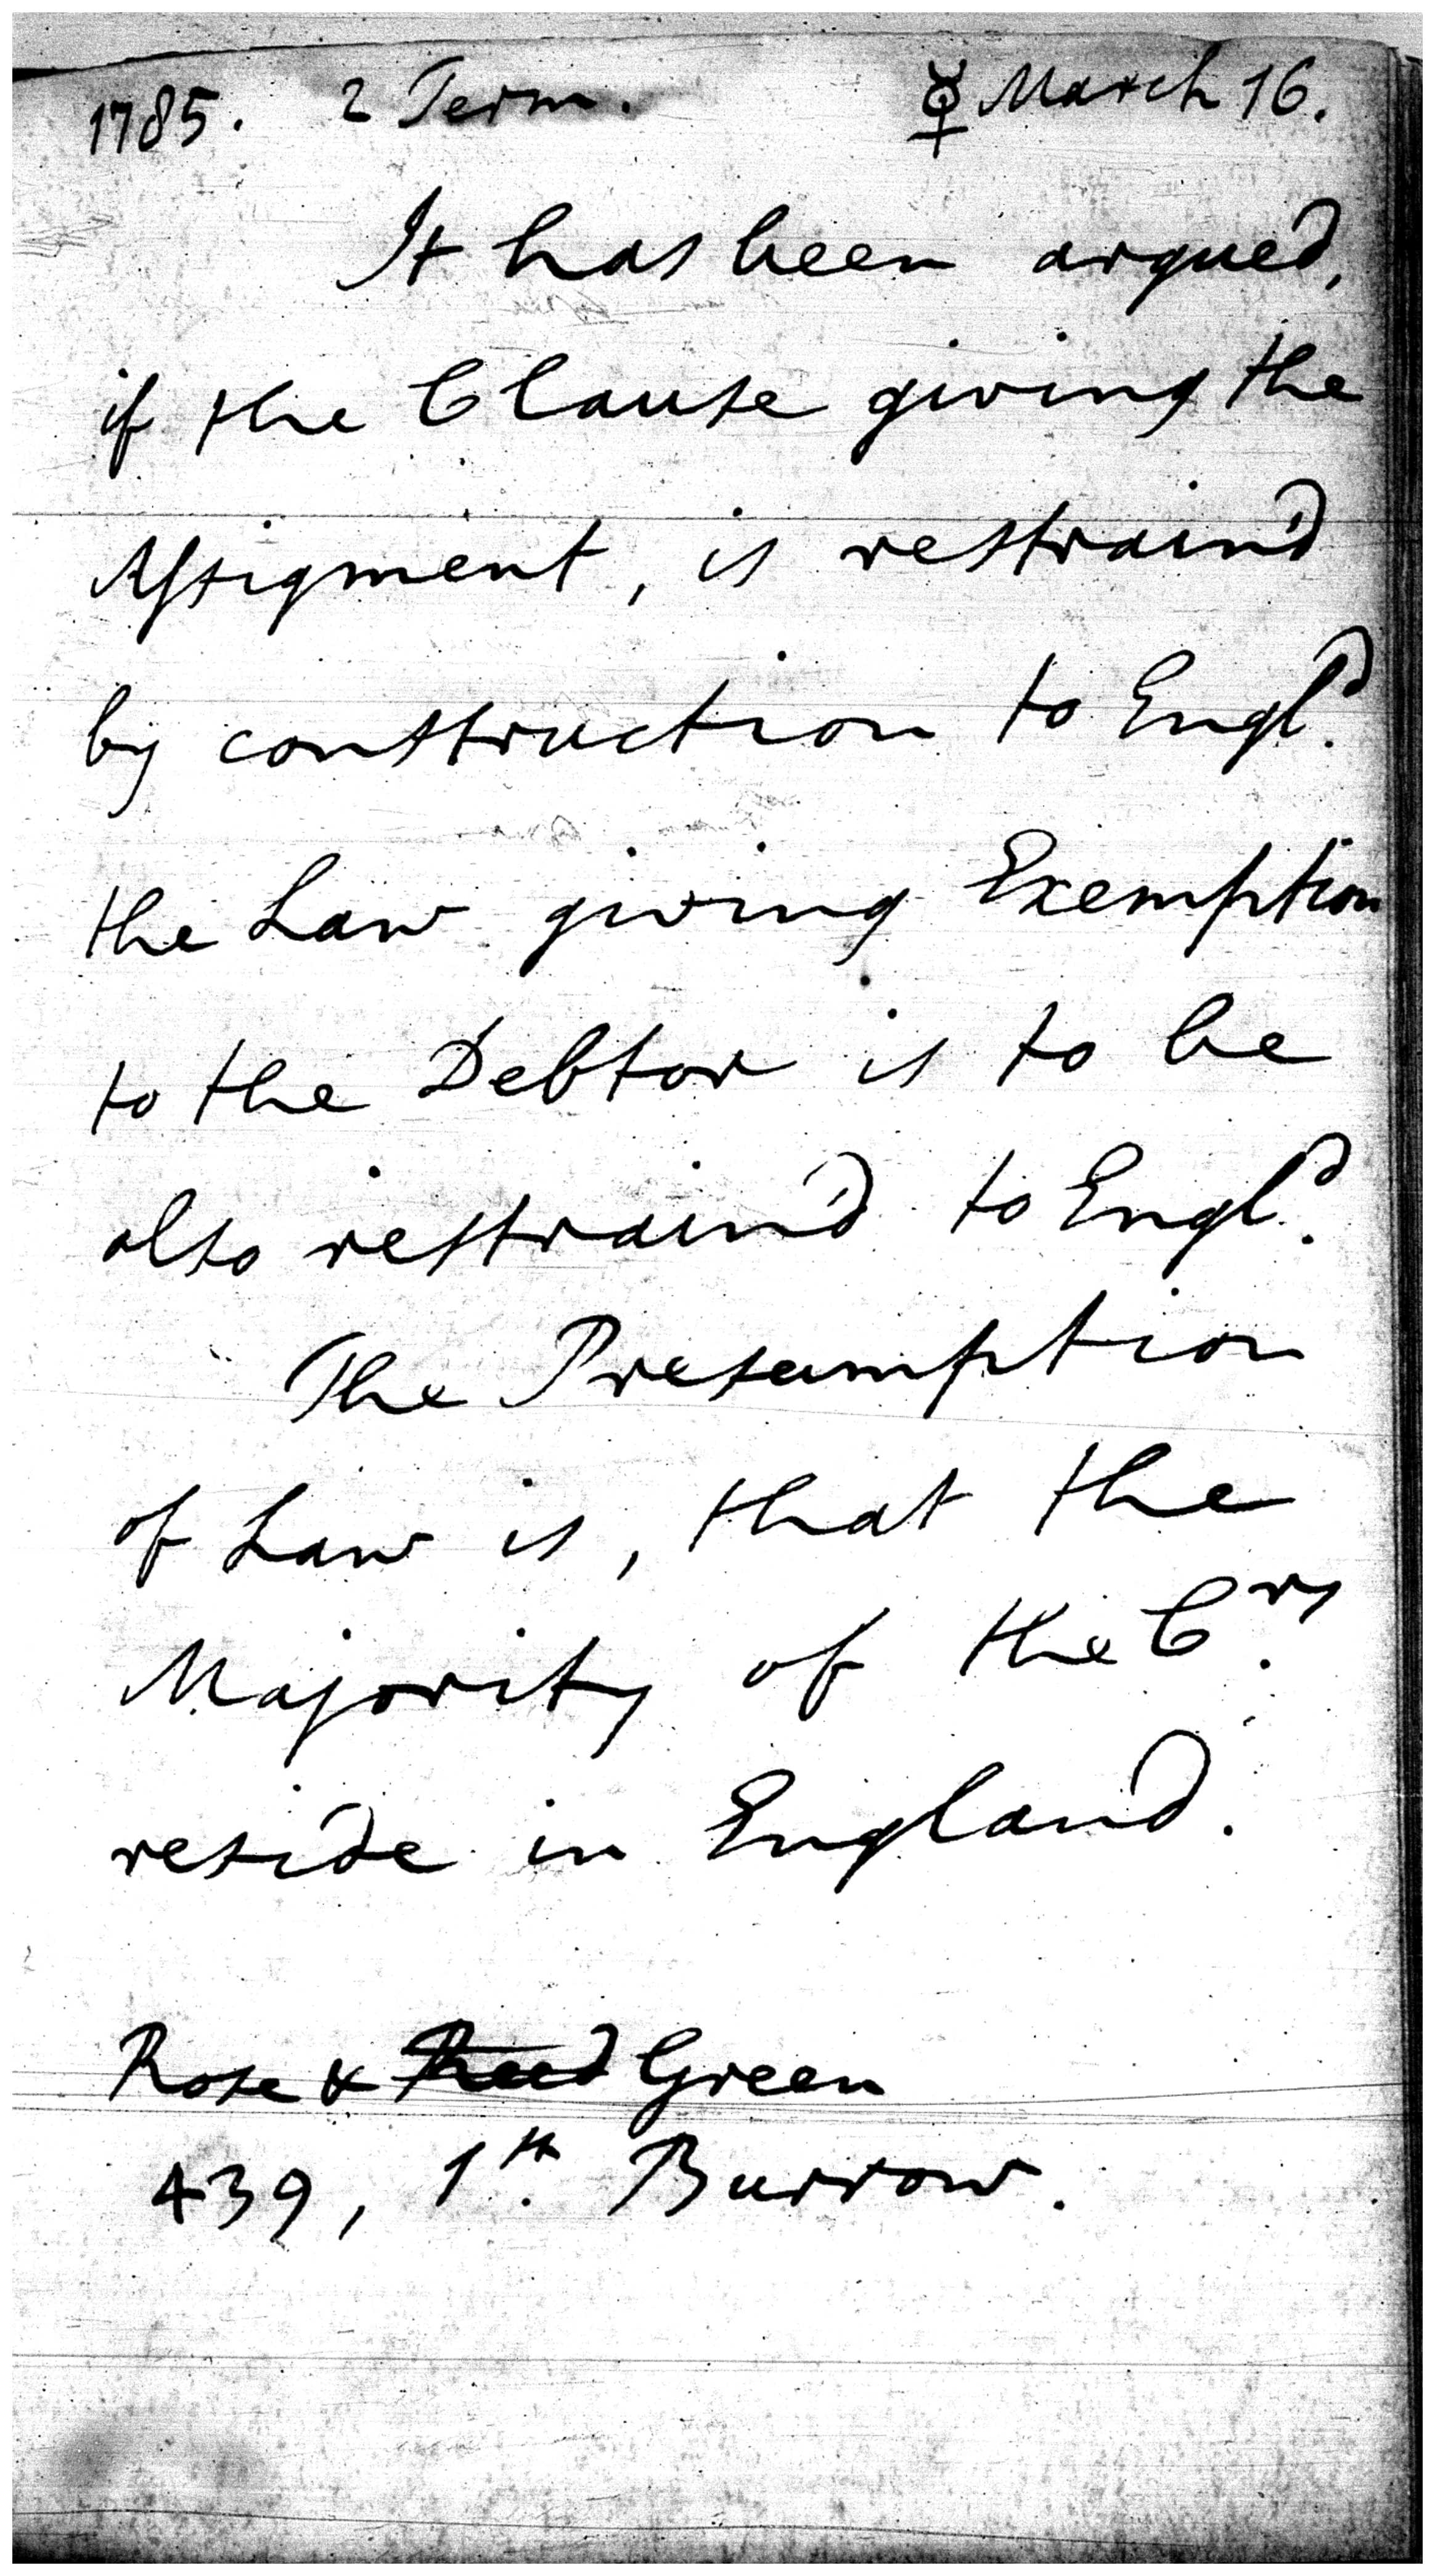 1785. 2 Term. ☿ March 16.
It has been argued,
if the Clause giving the
Assigment, is restrain'd
by construction to Engl.d
the Law giving Exemption
to the Debtor is to be
also restrain'd to Engl.d
The Presumption
of Law is, that the
Majority of the C.rs
reside in England.
Rose & Green
439, 1st. Burrow.